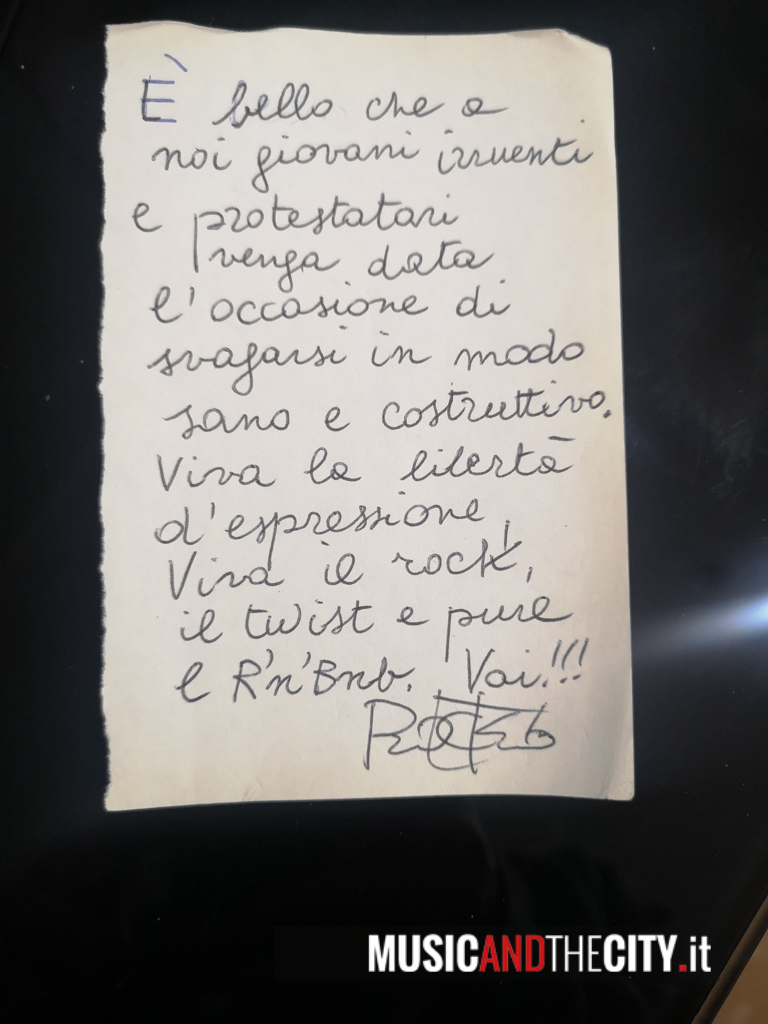 È bello che a
noi giovani irruenti
e protestatari
venga data
l'occasione di
svagarsi in modo
sano e costruttivo.
Viva la libertà
d'espressione,
Viva il rock,
il twist e pure
l R'n'Bnb. Vai!!!
MUSICANDTHECITY.it